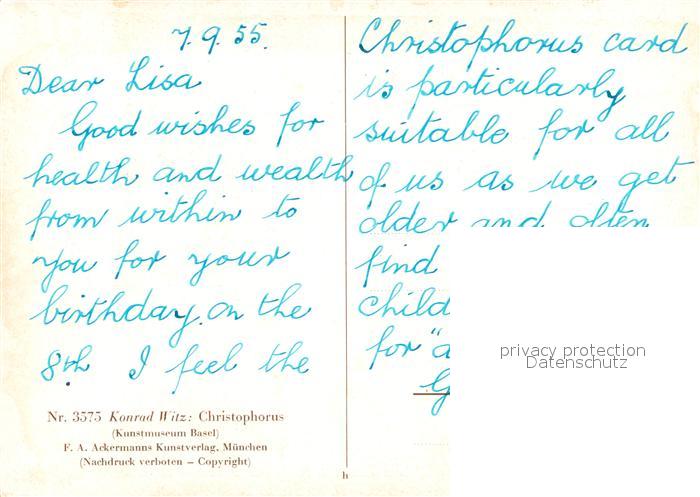 7.9.55.
Dear Lisa
Good wishes for
health and wealth
from within to
you for your
birthday on the
8th I feel the
Christophorus card
is particularly
suitable for all
of us as we get
older and often
find
child
for "a
Nr. 3575 Konrad Witz: Christophorus
(Kunstmuseum Basel)
F. A. Ackermanns Kunstverlag, München
(Nachdruck verboten – Copyright)
h
privacy protection
Datenschutz